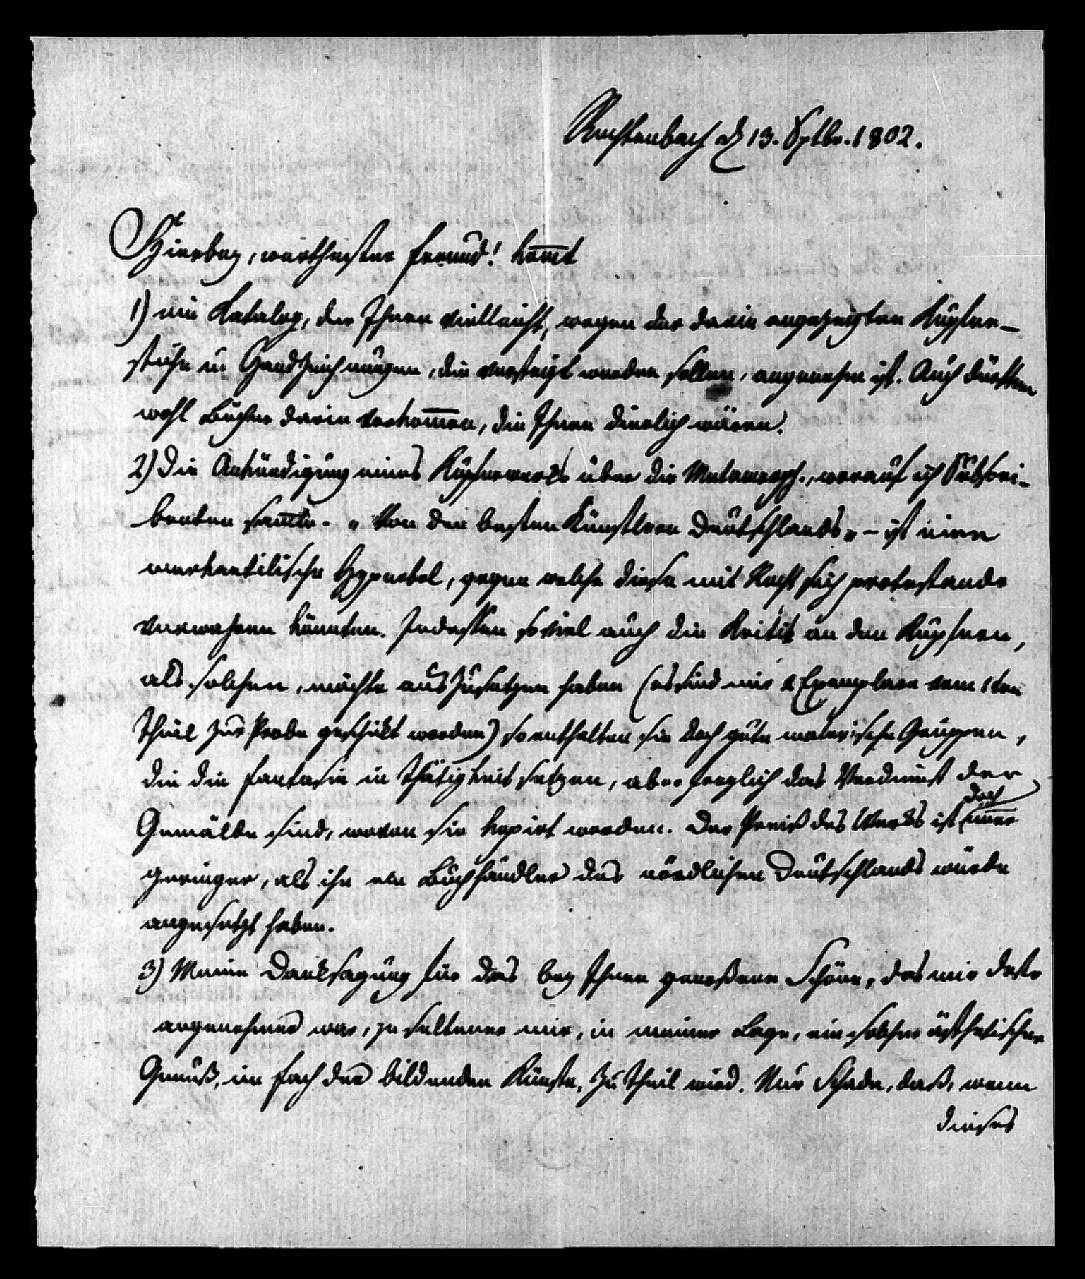 Rechtenbach d 13. Sptbr. 1802.
Hierbey, werthester Freund! kom̅t
1) ein Katalog, der Ihnen vielleicht, wegen der darin angezeigten Kupfer-
stiche u Handzeichnungen, die versteigt werden sollen, angenehm ist. Auch dürften
wohl Bücher darin vorkom̅en, die Ihnen dienlich wären.
2) Die Ankündigung eines Kupferwerks über die Metamorph., worauf ich Subscri-
benten sam̅le. „Von den besten Künstlern Deutschlands„ - ist eine
merkantilische Hyperbel, gegen welche diese mit Recht sich protestando
verwahren könnten. Indessen soviel auch die Kritik an den Kupfern,
als solchen, möchte auszusetzen haben (es sind mir 2 Exemplare vom 1ten
Theil zur Probe geschikt worden) so enthalten sie doch gute malerische Gruppen,
die die Fantasie in Thätigkeit setzen, aber freylich das Verdienst der
Gemälde sind, wovon sie kopirt worden. Der Preiß des Werks ist doch im̅er
geringer, als ihn ein Buchhändler des nördlichen Deutschlands würde
angesetzt haben.
3) Meine Danksagung für das bey Ihnen genoßene Schöne, das mir desto
angenehmer war, je seltener mir, in meiner Lage, ein solcher ästhetischer
Genuß, im Fach der bildenden Künste, zu Theil wird. Nur Schade, daß, wenn
dieses